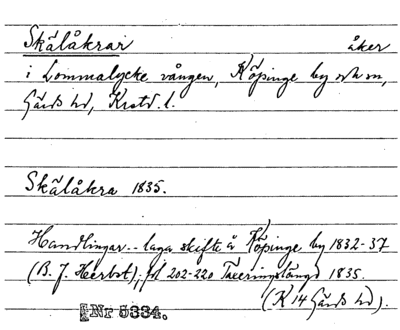 Skälåkrar åker
i Lommalycke vången, Köpinge by och sn,
Gärds hd, Krstd. l.
Skälåkra 1835.
Handlingar.. laga skifte å Köpinge by 1832-37
(B. J. Heerbst), fol 202-220 Taxeringslängd 1835.
(K 14 Gärds hd).
Nr 5334.